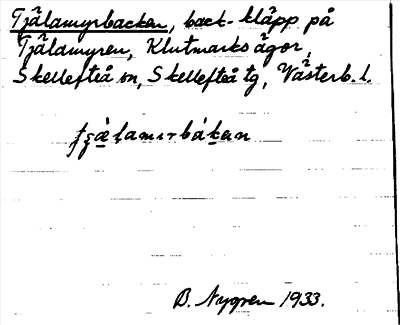 Tjälamyrbacken, back-kläpp på
Tjälamyren, Klutmarks ägor,
Skellefteå sn, Skellefteå tg, Västerb. l.
B. Nygren 1933.